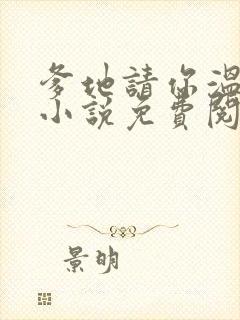 爹地請你溫
小說免費閱
景明